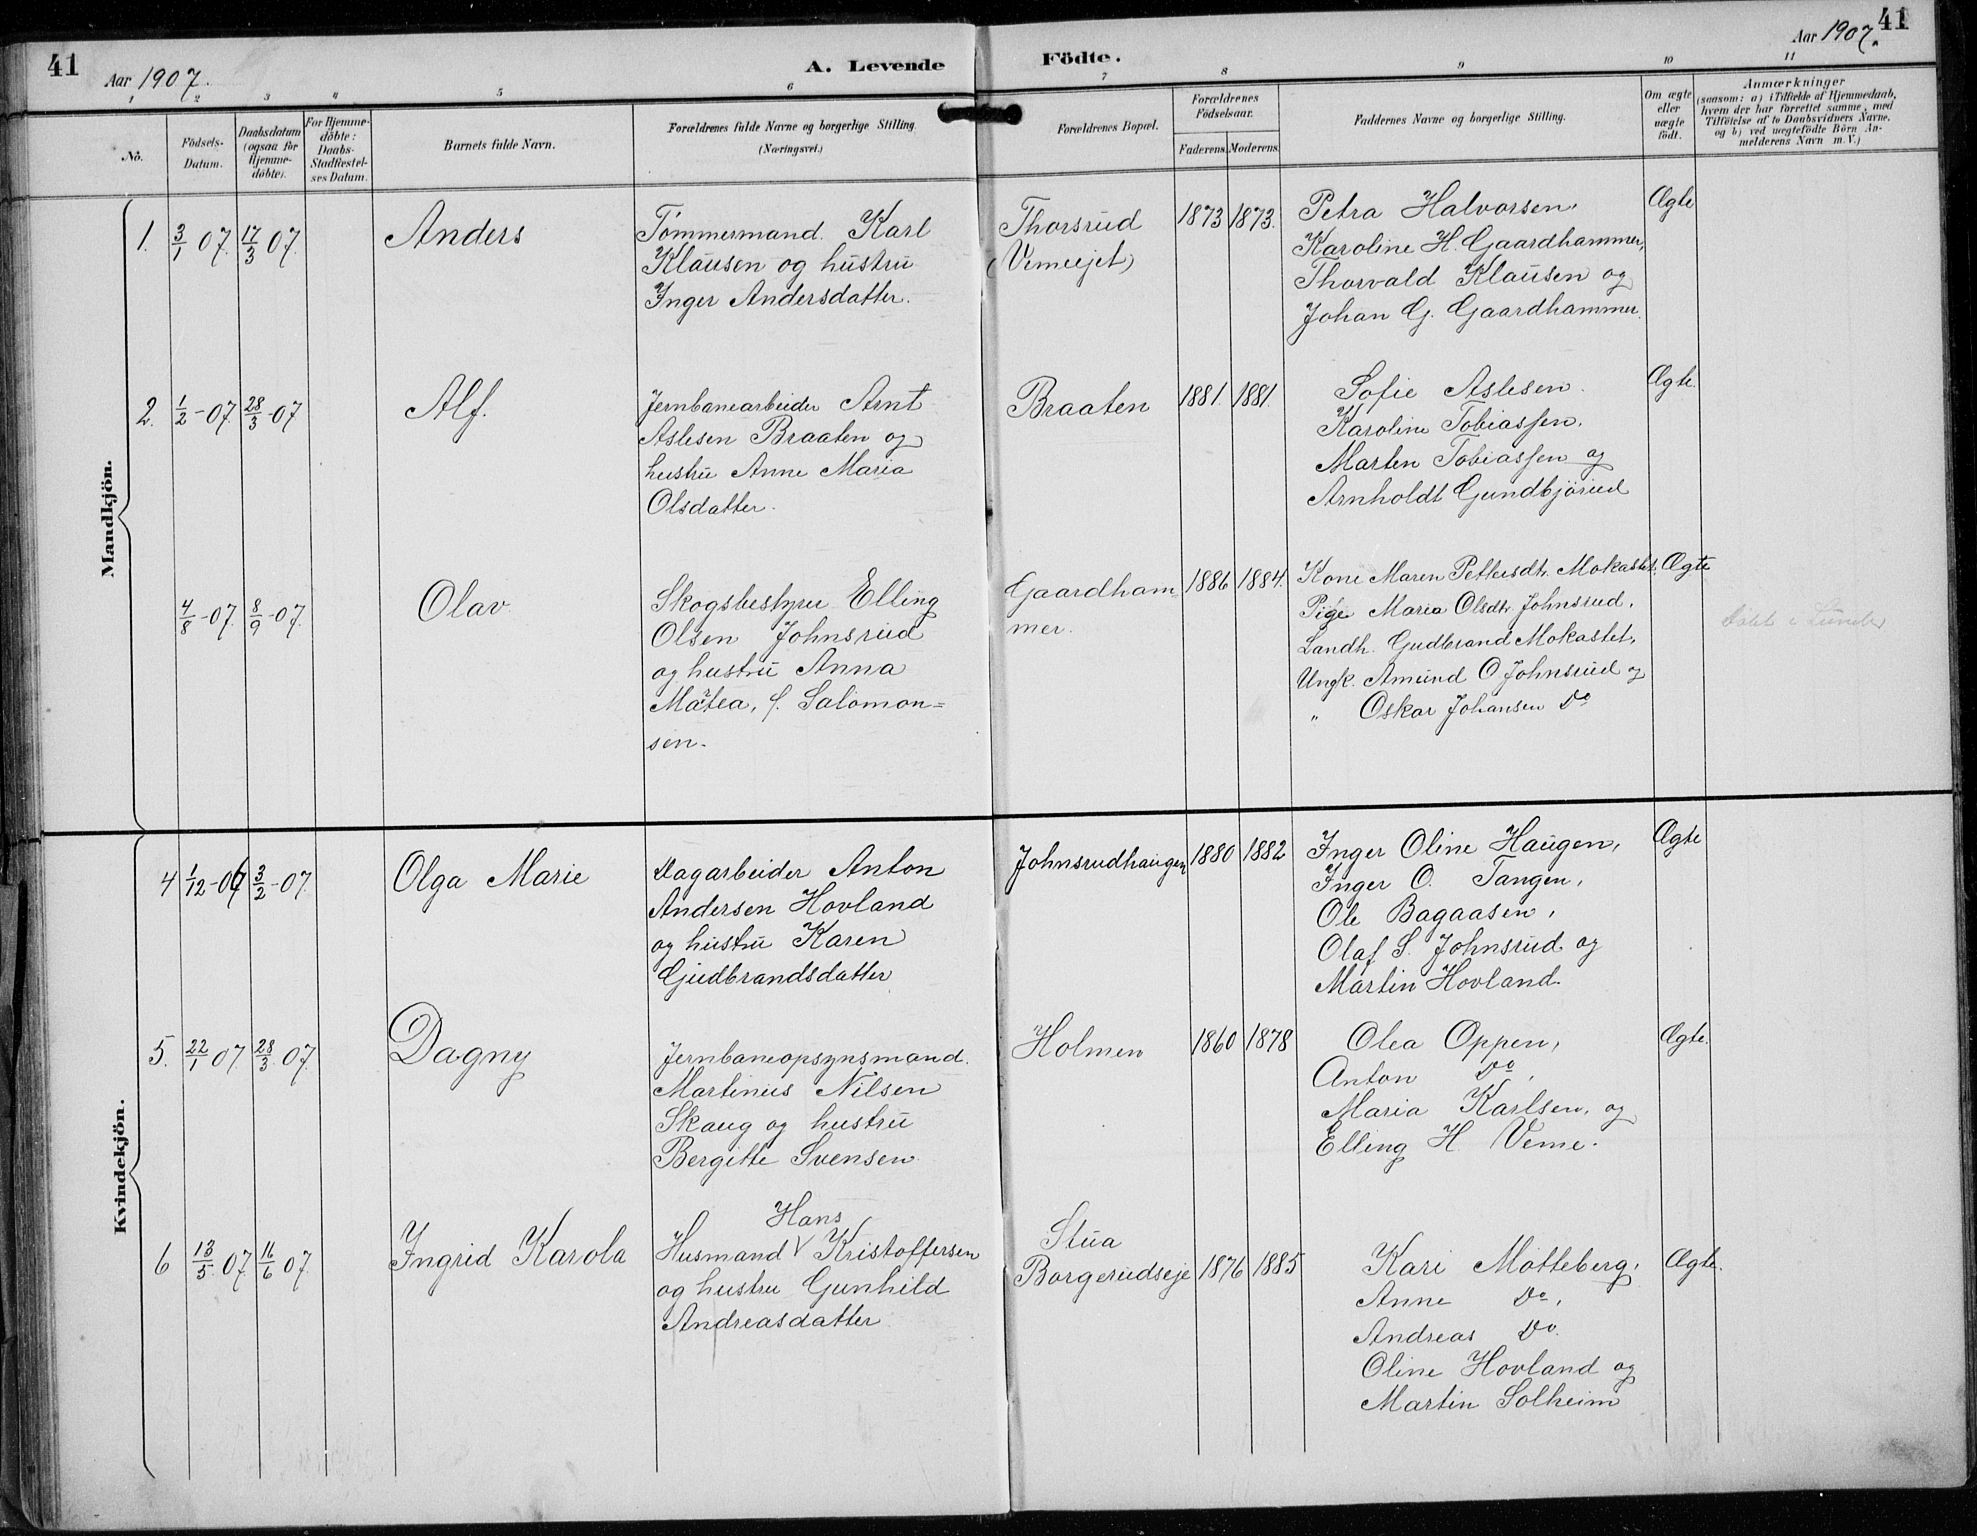 41
Aar 1907.
A. Levende Födte.
Aar 1907.
41
1 2 3 4 5 6 7 8 9 10 11
No.
Födsels-
Datum.
Daabsdatum
(ogsaa for
Hjemme-
döbte).
For Hjemme-
döbte:
Daabs-
Stadfæstel-
ses Datum.
Barnets fulde Navn.
Forældrenes fulde Navne og borgerlige Stilling.
(Næringsvei.)
Forældrenes Bopæl.
Forældrenes
Födselsaar.
Faderens. Moderens.
Faddernes Navne og borgerlige Stilling.
Om ægte
eller
uægte
födt.
Anmærkninger
(saasom: a) i Tilfælde af Hjemmedaab,
hvem der har forrettet samme, med
Tilföielse af to Daabsvidners Navne,
og b) ved uægtefödte Börn An-
melderens Navn m. V.)
Mandkjön.
1. 3/1 07. 17/3 07. Anders
Tømmermand Karl
Klausen og hustru
Inger Andersdatter.
Thorsrud
(Vemeejet)
1873 1873.
Petra Halvorsen,
Karoline H. Gaardhammer,
Thorvald Klausen og
Johan G. Gaardhammer.
Ægte
2. 1/2-07. 28/3-07 Alf.
Jernbanearbeider Arnt
Aslesen Braaten og
hustru Anne Maria
Olsdatter.
Braaten
1881. 1881.
Sofie Aslesen.
Karoline Tobiassen.
Marten Tobiassen og
Arnholdt Gundbjørud
Ægte.
4/8-07. 8/9-07. Olav
Skogsbestyrer Elling
Olsen Johnsrud
og hustru Anna
Matea, f. Salomon=
sen.
Gaardham
mer.
1886 1884.
Kone Maren Pettersdtr. Mokastet.
Pige Maria Olsdtr. Johnsrud.
Landh. Gudbrand Mokastet,
Ungk. Amund O. Johnsrud og
" Oskar Johansen Do
Ægte
Kvindekjön.
4 1/12-06 3/2-07. Olga Marie
Dagarbeider Anton
Andersen Hovland
og hustru Karen
Gudbrandsdatter
Johnsrudhaugen
1880 1882
Inger Oline Haugen,
Inger O. Tangen,
Ole Bagaasen,
Olaf S. Johnsrud og
Martin Hovland.
Ægte
5. 22/1 07. 28/3 07. Dagny
Jernbaneopsynsmand.
Martinius Nilsen
Skaug og hustru
Bergitte Svensen
Holmen
1860 1878
Olea Oppen,
Anton Do,
Maria Karlsen, og
Elling H. Veme.
Ægte.
6 13/5 07. 16/6 07. Ingrid Karola
Hans
Husmand V Kristoffersen
og hustru Gunhild
Andreasdatter
Stua
Borgerudseje
1876 1885
Kari Motteberg,
Anne Do,
Andreas Do.
Oline Hovland og
Martin Solheim
Ægte.